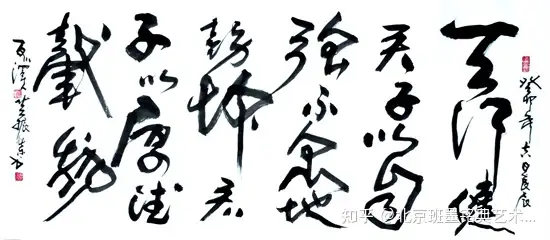 癸卯年吉日良辰
天行健
君子以自
強不息地
勢坤君
子以厚德
載物
知乎 @北京班墨铭典艺术...